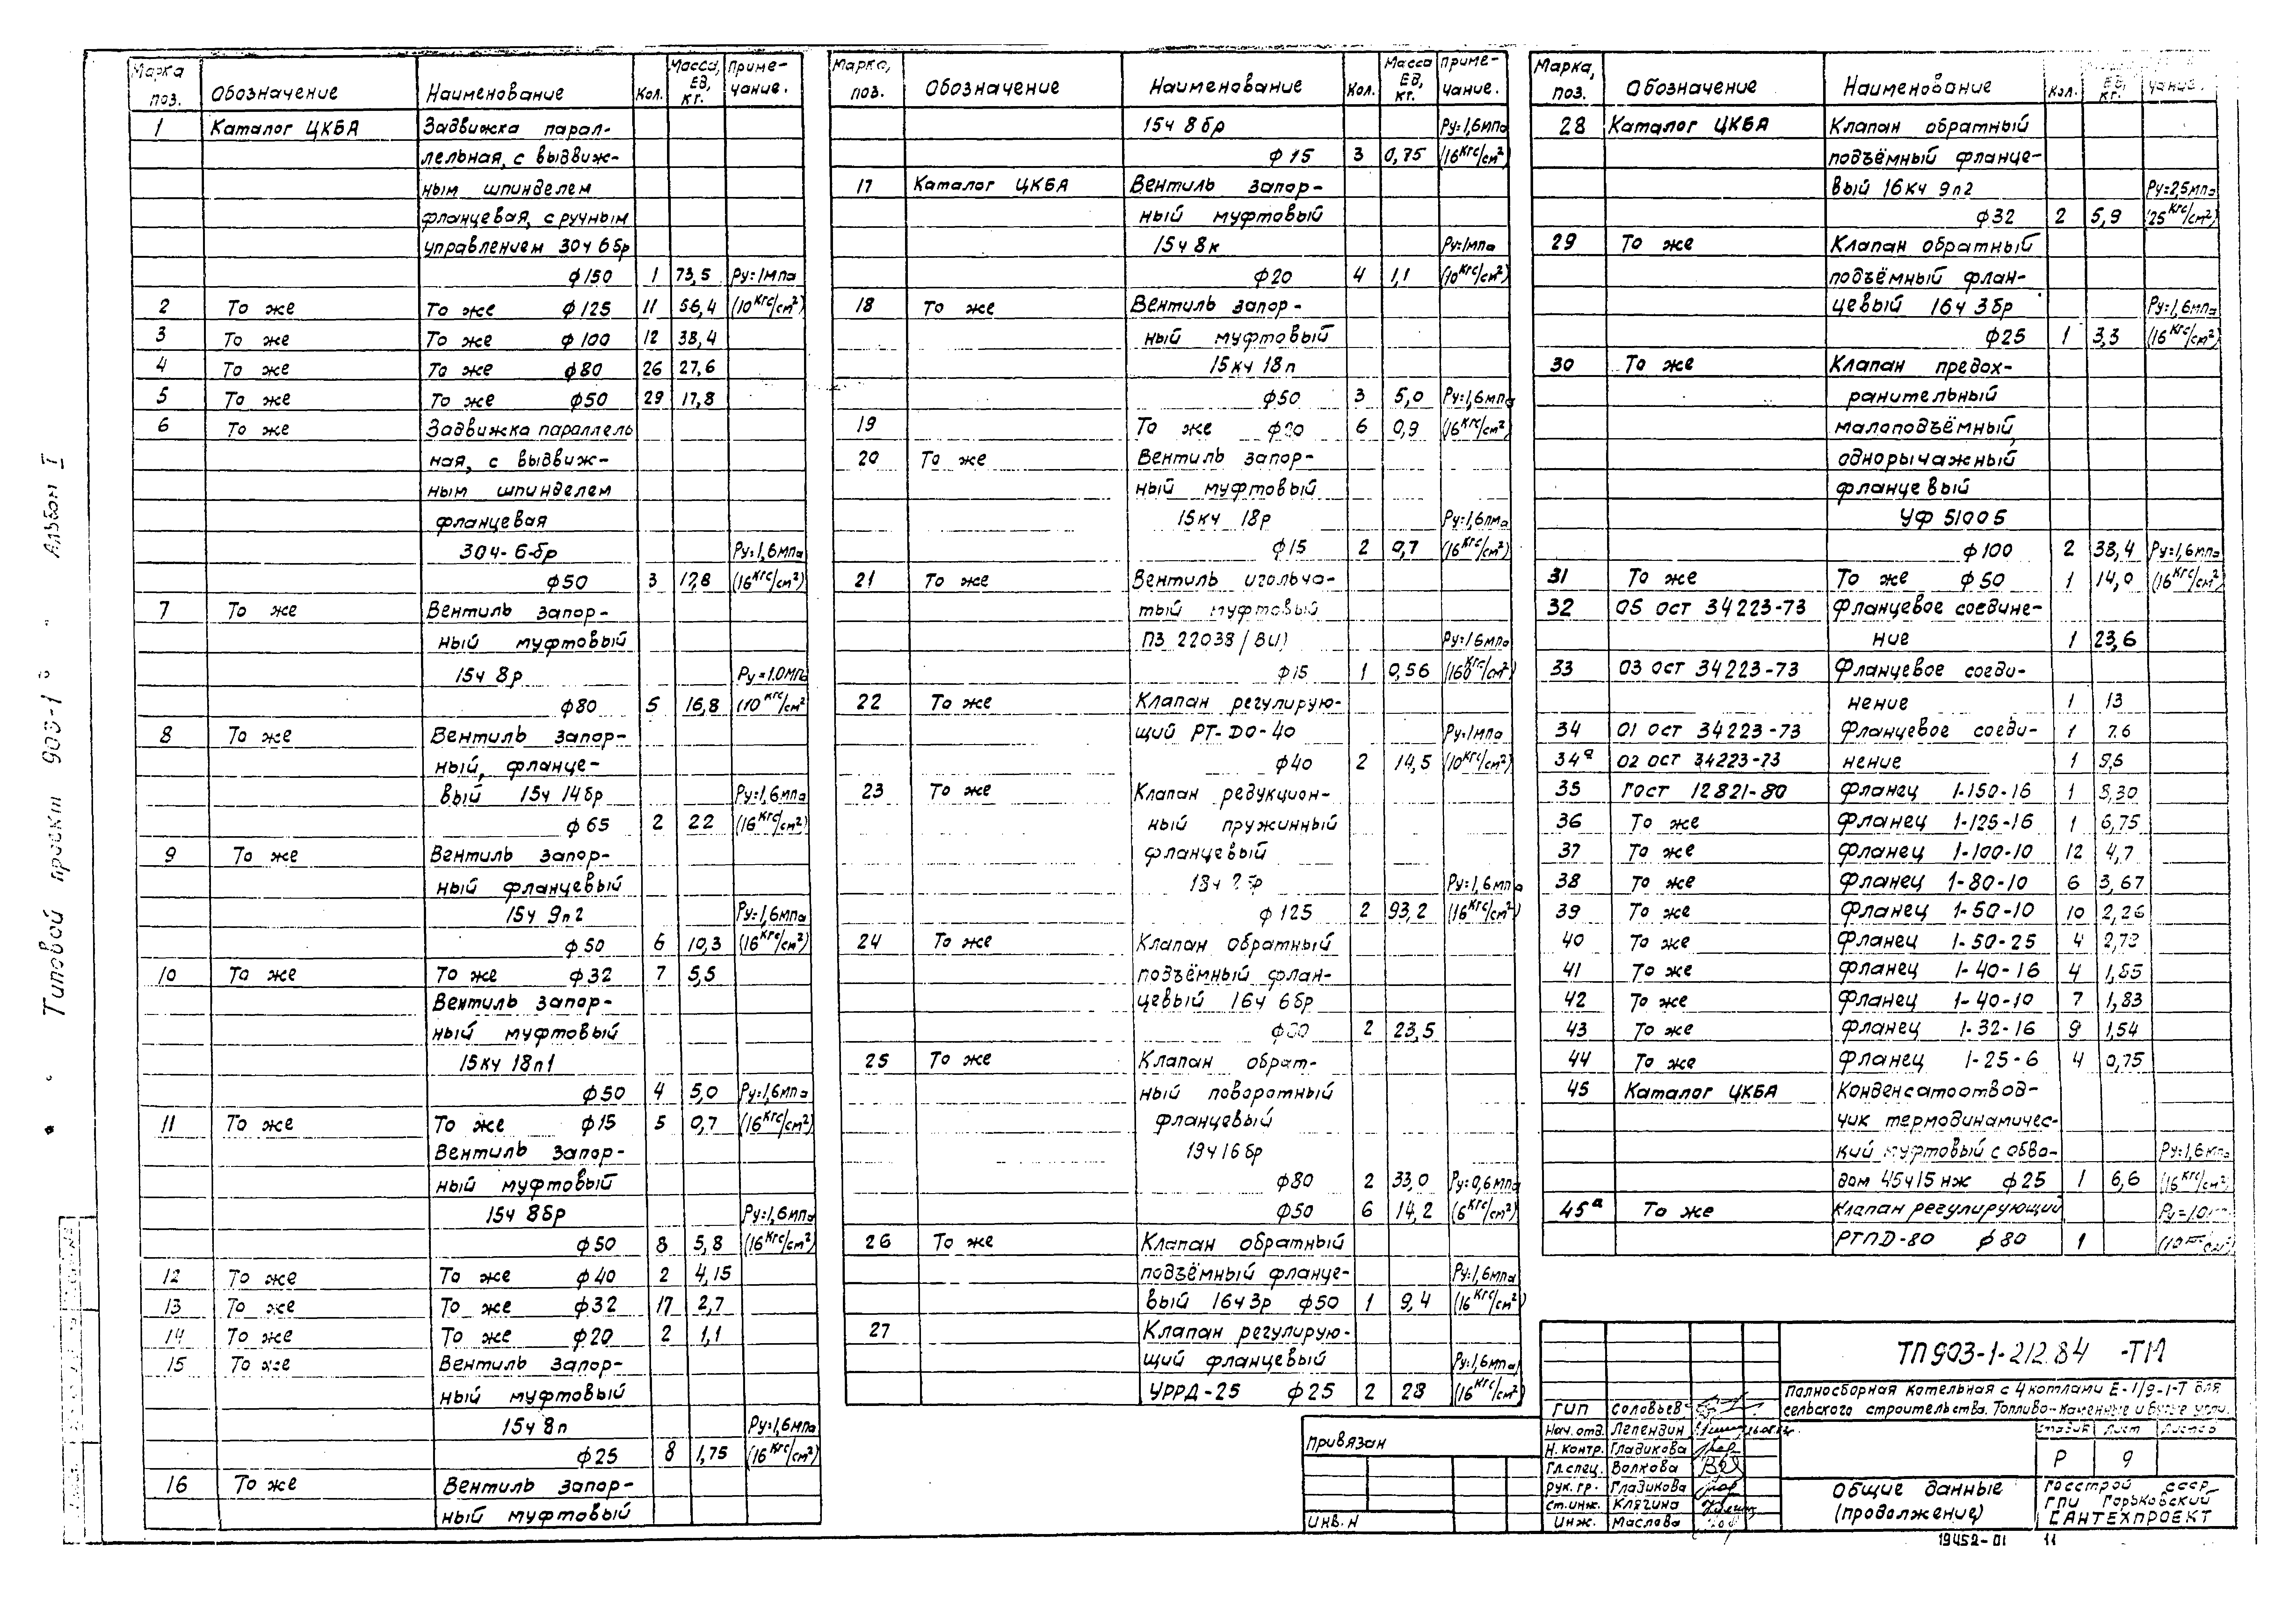 Марка поз. Обозначение Наименование Кол. Масса, ЕД, кг. Приме-чание.
1 Каталог ЦКБА Задвижка парал-
лельная, с выдвиж-
ным шпинделем
фланцевая, с ручным
управлением 30ч 6бр
ф150 1 73,5 Ру=1мпа
2 То же То же ф125 11 56,4 (10кгс/см²)
3 То же То же ф100 12 38,4
4 То же То же ф80 26 27,6
5 То же То же ф50 29 17,8
6 То же Задвижка параллель
ная, с выдвиж-
ным шпинделем
фланцевая
30ч-6-бр Ру=1,6мпа
ф50 3 17,8 (16кгс/см²)
7 То же Вентиль запор-
ный муфтовый
15ч 8р Ру=1.0мпа
ф80 5 16,8 (10кгс/см²
8 То же Вентиль запор-
ный, фланце-
вый 15ч 14бр Ру=1,6мпа
ф65 2 22 (16кгс/см²)
9 То же Вентиль запор-
ный фланцевый
15ч 9п2 Ру=1,6мпа
ф50 6 10,3 (16кгс/см²)
10 То же То же ф32 7 5,5
Вентиль запор-
ный муфтовый
15кч 18п1
ф50 4 5,0 Ру=1,6мпа
11 То же То же ф15 5 0,7 (16кгс/см²)
Вентиль запор-
ный муфтовый
15ч 8бр Ру=1,6мпа
ф50 8 5,8 (16кгс/см²)
12 То же То же ф40 2 4,15
13 То же То же ф32 17 2,7
14 То же То же ф20 2 1,1
15 То же Вентиль запор-
ный муфтовый
15ч 8п Ру=1,6мпа
ф25 8 1,75 (16кгс/см²)
16 То же Вентиль запор-
ный муфтовый
Марка, поз. Обозначение Наименование Кол. Масса ЕД, кг. Приме-чание.
15ч 8бр Ру=1,6мпа
ф15 3 0,75 (16кгс/см²)
17 Каталог ЦКБА Вентиль запор-
ный муфтовый
15ч 8к Ру=1мпа
ф20 4 1,1 (10кгс/см²)
18 То же Вентиль запор-
ный муфтовый
15кч 18п
ф50 3 5,0 Ру=1,6мпа
19 То же ф20 6 0,9 (16кгс/см²)
20 То же Вентиль запор-
ный муфтовый
15кч 18р Ру=1,6мпа
ф15 2 0,7 (16кгс/см²)
21 То же Вентиль игольча-
тый муфтовый
ПЗ 22038/ВИ) Ру=16мпа
ф15 1 0,56 (160кгс/см²)
22 То же Клапан регулирую-
щий РТ-DО-40 Ру=1мпа
ф40 2 14,5 (10кгс/см²)
23 То же Клапан редукцион-
ный пружинный
фланцевый
18ч 2бр Ру=1,6мпа
ф125 2 93,2 (16кгс/см²)
24 То же Клапан обратный
подъёмный флан-
цевый 16ч 6бр
2 23,5
25 То же Клапан обрат-
ный поворотный
фланцевый
19ч16бр
ф80 2 33,0 Ру=0,6мпа
ф50 6 14,2 (6кгс/см²)
26 То же Клапан обратный
подъёмный фланце- Ру=1,6мпа
вый 16ч3р ф50 1 9,4 (16кгс/см²)
27 Клапан регулирую-
щий фланцевый Ру=1,6мпа
УРРД-25 ф25 2 28 (16кгс/см²)
Марка, поз. Обозначение Наименование Кол. ЕД, кг. чание.
28 Каталог ЦКБА Клапан обратный
подъёмный фланце-
вый 16кч 9п2 Ру=2,5мпа
ф32 2 5,9 (25кгс/см²)
29 То же Клапан обратный
подъёмный флан-
цевый 16ч 3бр Ру=1,6мпа
ф25 1 3,3 (16кгс/см²)
30 То же Клапан предох-
ранительный
малоподъёмный,
однорычажный
фланцевый
УФ 51005
ф100 2 38,4 Ру=1,6мпа
31 То же То же ф50 1 14,0 (16кгс/см²)
32 05 ост 34223-73 Фланцевое соедине-
ние 1 23,6
33 03 ост 34223-73 Фланцевое соеди-
нение 1 13
34 01 ост 34223-73 Фланцевое соеди- 1 7.6
34ª 02 ост 34223-73 нение 1 9,6
35 Гост 12821-80 Фланец 1-150-16 1 8,30
36 То же Фланец 1-125-16 1 6,75
37 То же Фланец 1-100-10 12 4,7
38 То же Фланец 1-80-10 6 3,67
39 То же Фланец 1-50-10 10 2,26
40 То же Фланец 1-50-25 4 2,73
41 То же Фланец 1-40-16 4 1,85
42 То же Фланец 1-40-10 7 1,83
43 То же Фланец 1-32-16 9 1,54
44 То же Фланец 1-25-6 4 0,75
45 Каталог ЦКБА Конденсатоотвод-
чик термодинамичес-
кий муфтовый с обво- Ру=1,6мпа
дом 45ч15нж ф25 1 6,6 (16кгс/см²)
45ª То же Клапан регулирующий Ру=1,0
РТПД-80 ф80 1
Привязан
ИНВ.Н
ГИП Соловьев
Нач. отд. Лепендин
Н. контр. Гладикова
Гл.спец. Волкова
Рук. гр. Гладикова
Ст.инж. Клягина
Инж. Маслова
ТП 903-1-212.84 -ТМ
Полносборная котельная с 4 котлами Е-1/9-1-Т для
сельского строительства. Топливо-каменные и бурые угли.
Стадия Лист Листов
Р 9
Общие данные
(продолжение)
Госстрой СССР
ГПИ Горьковский
САНТЕХПРОЕКТ
19452-01 11
Типовой проект 903-1
Альбом I